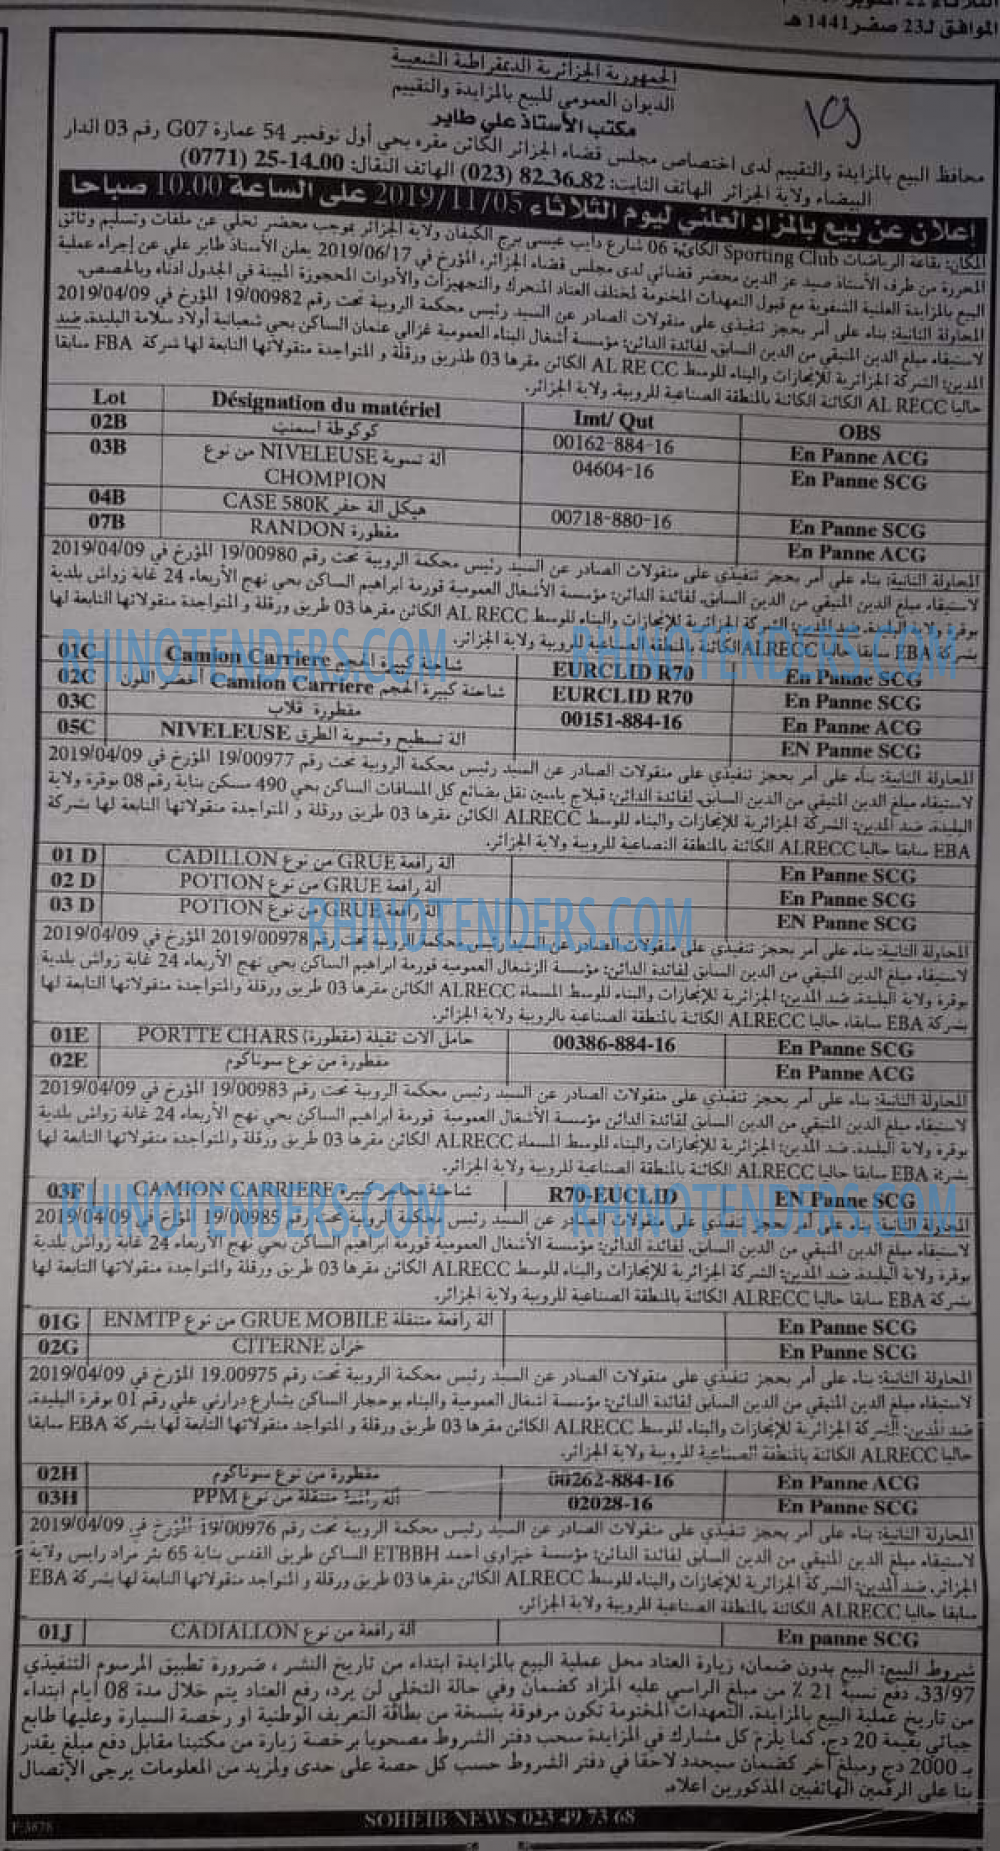 الموافق لـ23 صفر 1441 هـ
19
الجمهورية الجزائرية الديمقراطية الشعبية
الديوان العمومي للبيع بالمزايدة والتقييم
مكتب الأستاذ علي طاير
محافظ البيع بالمزايدة والتقييم لدى اختصاص مجلس قضاء الجزائر الكائن مقره بحي أول نوفمبر 54 عمارة G07 رقم 03 الدار
البيضاء ولاية الجزائر الهاتف الثابت: 82.36.82 (023) الهاتف النقال: 25-14.00 (0771)
إعلان عن بيع بالمزاد العلني ليوم الثلاثاء 2019/11/05 على الساعة 10.00 صباحا
المكان: بقاعة الرياضات Sporting Club الكائنة 06 شارع دايب عيسى برج الكيفان ولاية الجزائر بموجب محضر تخلي عن ملفات وتسليم وثائق
المحررة من طرف الأستاذ صيد عز الدين محضر قضائي لدى مجلس قضاء الجزائر، المؤرخ في 2019/06/17 يعلن الأستاذ طاير علي عن إجراء عملية
البيع بالمزايدة العلنية الشفوية مع قبول التعهدات المختومة لمختلف العتاد المتحرك والتجهيزات والأدوات المحجوزة المبينة في الجدول أدناه وبالحصص.
المحاولة الثانية: بناء على أمر بحجز تنفيذي على منقولات الصادر عن السيد رئيس محكمة الروبية تحت رقم 19/00982 المؤرخ في 2019/04/09
لاستيفاء مبلغ الدين المتبقي من الدين السابق، لفائدة الدائن: مؤسسة أشغال البناء العمومية غزالي عثمان الساكن بحي شعبانية أولاد سلامة البليدة، ضد
المدين: الشركة الجزائرية للإنجازات والبناء للوسط AL RE CC الكائن مقرها 03 طذريق ورقلة و المتواجدة منقولاتها التابعة لها شركة FBA سابقا
حاليا AL RECC الكائنة الكائنة بالمنطقة الصناعية للروبية، ولاية الجزائر.
Lot Désignation du matériel Imt/ Qut OBS
02B كوكوطة اسمنت 00162-884-16 En Panne ACG
03B آلة تسوية NIVELEUSE من نوع 04604-16 En Panne SCG
CHOMPION
04B هيكل الة حفر CASE 580K 00718-880-16 En Panne SCG
07B مقطورة RANDON En Panne ACG
المحاولة الثانية: بناء على أمر بحجز تنفيذي على منقولات الصادر عن السيد رئيس محكمة الروبية تحت رقم 19/00980 المؤرخ في 2019/04/09
لاستيفاء مبلغ الدين المتبقي من الدين السابق، لفائدة الدائن: مؤسسة الأشغال العمومية قورمة ابراهيم الساكن بحي نهج الأربعاء 24 غابة زواش بلدية
بوقرة ولاية البليدة، ضد المدين: الشركة الجزائرية للإنجازات والبناء للوسط AL RECC الكائن مقرها 03 طريق ورقلة و المتواجدة منقولاتها التابعة لها
بشركة EBA سابقا حاليا ALRECC الكائنة بالمنطقة الصناعية للروبية ولاية الجزائر.
RHINOTENDERS.COM RHINOTENDERS.COM
01C شاحنة كبيرة الحجم Camion Carriere EURCLID R70 En Panne SCG
02C شاحنة كبيرة الحجم Camion Carriere أخضر اللون EURCLID R70 En Panne SCG
03C مقطورة قلاب 00151-884-16 En Panne ACG
05C الة تسطيح وتسوية الطرق NIVELEUSE EN Panne SCG
المحاولة الثانية: بناء على أمر بحجز تنفيذي على منقولات الصادر عن السيد رئيس محكمة الروبية تحت رقم 19/00977 المؤرخ في 2019/04/09
لاستيفاء مبلغ الدين المتبقي من الدين السابق، لفائدة الدائن: قبلاج ياسين نقل بضائع كل المسافات الساكن بحي 490 مسكن بناية رقم 08 بوقرة ولاية
البليدة، ضد المدين: الشركة الجزائرية للإنجازات والبناء للوسط ALRECC الكائن مقرها 03 طريق ورقلة و المتواجدة منقولاتها التابعة لها بشركة
EBA سابقا حاليا ALRECC الكائنة بالمنطقة النصاعية للروبية ولاية الجزائر.
01 D الة رافعة GRUE من نوع CADILLON En Panne SCG
02 D ألة رافعة GRUE من نوع POTION En Panne SCG
03 D ألة رافعة GRUE من نوع POTION EN Panne SCG
RHINOTENDERS.COM
المحاولة الثانية: بناء على أمر بحجز تنفيذي على منقولات الصادر عن السيد رئيس محكمة الروبية تحت رقم 2019/00978 المؤرخ في 2019/04/09
لاستيفاء مبلغ الدين المتبقي من الدين السابق لفائدة الدائن: مؤسسة الزشغال العمومية قورمة ابراهيم الساكن بحي نهج الأربعاء 24 غابة زواش بلدية
بوقرة ولاية البليدة، ضد المدين: الجزائرية للإنجازات والبناء للوسط المسماة ALRECC الكائن مقرها 03 طريق ورقلة والمتواجدة منقولاتها التابعة لها
بشركة EBA سابقا، حاليا ALRECC الكائنة بالمنطقة الصناعية بالروبية ولاية الجزائر.
01E حامل الات ثقيلة (مقطورة) PORTTE CHARS 00386-884-16 En Panne SCG
02E مقطورة من نوع سوناكوم En Panne ACG
المحاولة الثانية: بناء على أمر بحجز تنفيذي على منقولات الصادر عن السيد رئيس محكمة الروبية تحت رقم 19/00983 المؤرخ في 2019/04/09
لاستيفاء مبلغ الدين المتبقي من الدين السابق لفائدة الدائن مؤسسة الأشغال العمومية قورمة ابراهيم الساكن بحي نهج الأربعاء 24 غابة زواش بلدية
بوقرة ولاية البليدة، ضد المدين: الجزائرية للإنجازات والبناء للوسط المسماة ALRECC الكائن مقرها 03 طريق ورقلة والمتواجدة منقولاتها التابعة لها
بشركة EBA سابقا حاليا ALRECC الكائنة بالمنطقة الصناعية للروبية ولاية الجزائر.
03F شاحنة تحجر كبيرة CAMION CARRIERE R70-EUCLID EN Panne SCG
RHINOTENDERS.COM RHINOTENDERS.COM
المحاولة الثانية بناء على أمر بحجز تنفيذي على منقولات الصادر عن السيد رئيس محكمة الروبية تحت رقم 19/00985 المؤرخ في 2019/04/09
لاستيفاء مبلغ الدين المتبقي من الدين السابق، لفائدة الدائن: مؤسسة الأشغال العمومية قورمة ابراهيم الساكن بحي نهج الأربعاء 24 غابة زواش بلدية
بوقرة ولاية البليدة، ضد المدين: الشركة الجزائرية للإنجازات والبناء للوسط ALRECC الكائن مقرها 03 طريق ورقلة و المتواجدة منقولاتها التابعة لها
بشركة EBA سابقا حاليا ALRECC الكائنة بالمنطقة الصناعية للروبية ولاية الجزائر.
01G الة رافعة متنقلة GRUE MOBILE من نوع ENMTP En Panne SCG
02G خزان CITERNE En Panne SCG
المحاولة الثانية: بناء على أمر بحجز تنفيذي على منقولات الصادر عن السيد رئيس محكمة الروبية تحت رقم 19.00975 المؤرخ في 2019/04/09
لاستيفاء مبلغ الدين المتبقي من الدين السابق لفائدة الدائن: مؤسسة اشغال العمومية والبناء بوحجار الساكن بشارع درارني علي رقم 01 بوقرة البليدة،
ضد المدين: الشركة الجزائرية للإنجازات والبناء للوسط ALRECC الكائن مقرها 03 طريق ورقلة و المتواجد منقولاتها التابعة لها بشركة EBA سابقا
حاليا ALRECC الكائنة بالمنطقة الصناعية للروبية ولاية الجزائر.
02H مقطورة من نوع سوناكوم 00262-884-16 En Panne ACG
03H ألة رافعة متنقلة من نوع PPM 02028-16 En Panne SCG
المحاولة الثانية: بناء على أمر بحجز تنفيذي على منقولات الصادر عن السيد رئيس محكمة الروبية تحت رقم 19/00976 المؤرخ في 2019/04/09
لاستيفاء مبلغ الدين المتبقي من الدين السابق لفائدة الدائن: مؤسسة خيزاوي احمد ETBBH الساكن طريق القدس بناية 65 بئر مراد رايس ولاية
الجزائر، ضد المدين: الشركة الجزائرية للإنجازات والبناء للوسط ALRECC الكائن مقرها 03 طريق ورقلة و المتواجد منقولاتها التابعة لها بشركة EBA
سابقا حاليا ALRECC الكائنة بالمنطقة الصناعية للروبية ولاية الجزائر.
01J ألة رافعة من نوع CADIALLON En panne SCG
شروط البيع: البيع بدون ضمان، زيارة العتاد محل عملية البيع بالمزايدة ابتداء من تاريخ النشر ، ضرورة تطبيق المرسوم التنفيذي
33/97، دفع نسبة 21 ٪ من مبلغ الراسي عليه المزاد كضمان وفي حالة التخلي لن يرد، رفع العتاد يتم خلال مدة 08 أيام ابتداء
من تاريخ عملية البيع بالمزايدة، التعهدات المختومة تكون مرفوقة بنسخة من بطاقة التعريف الوطنية او رخصة السيارة وعليها طابع
جبائي بقيمة 20 دج، كما يلزم كل مشارك في المزايدة سحب دفتر الشروط مصحوبا برخصة زيارة من مكتبنا مقابل دفع مبلغ يقدر
بـ 2000 دج ومبلغ آخر كضمان سيحدد لاحقا في دفتر الشروط حسب كل حصة على حدى ولمزيد من المعلومات يرجى الإتصال
بنا على الرقمين الهاتفيين المذكورين اعلاه.
F:3878 SOHEIB NEWS 023 49 73 68